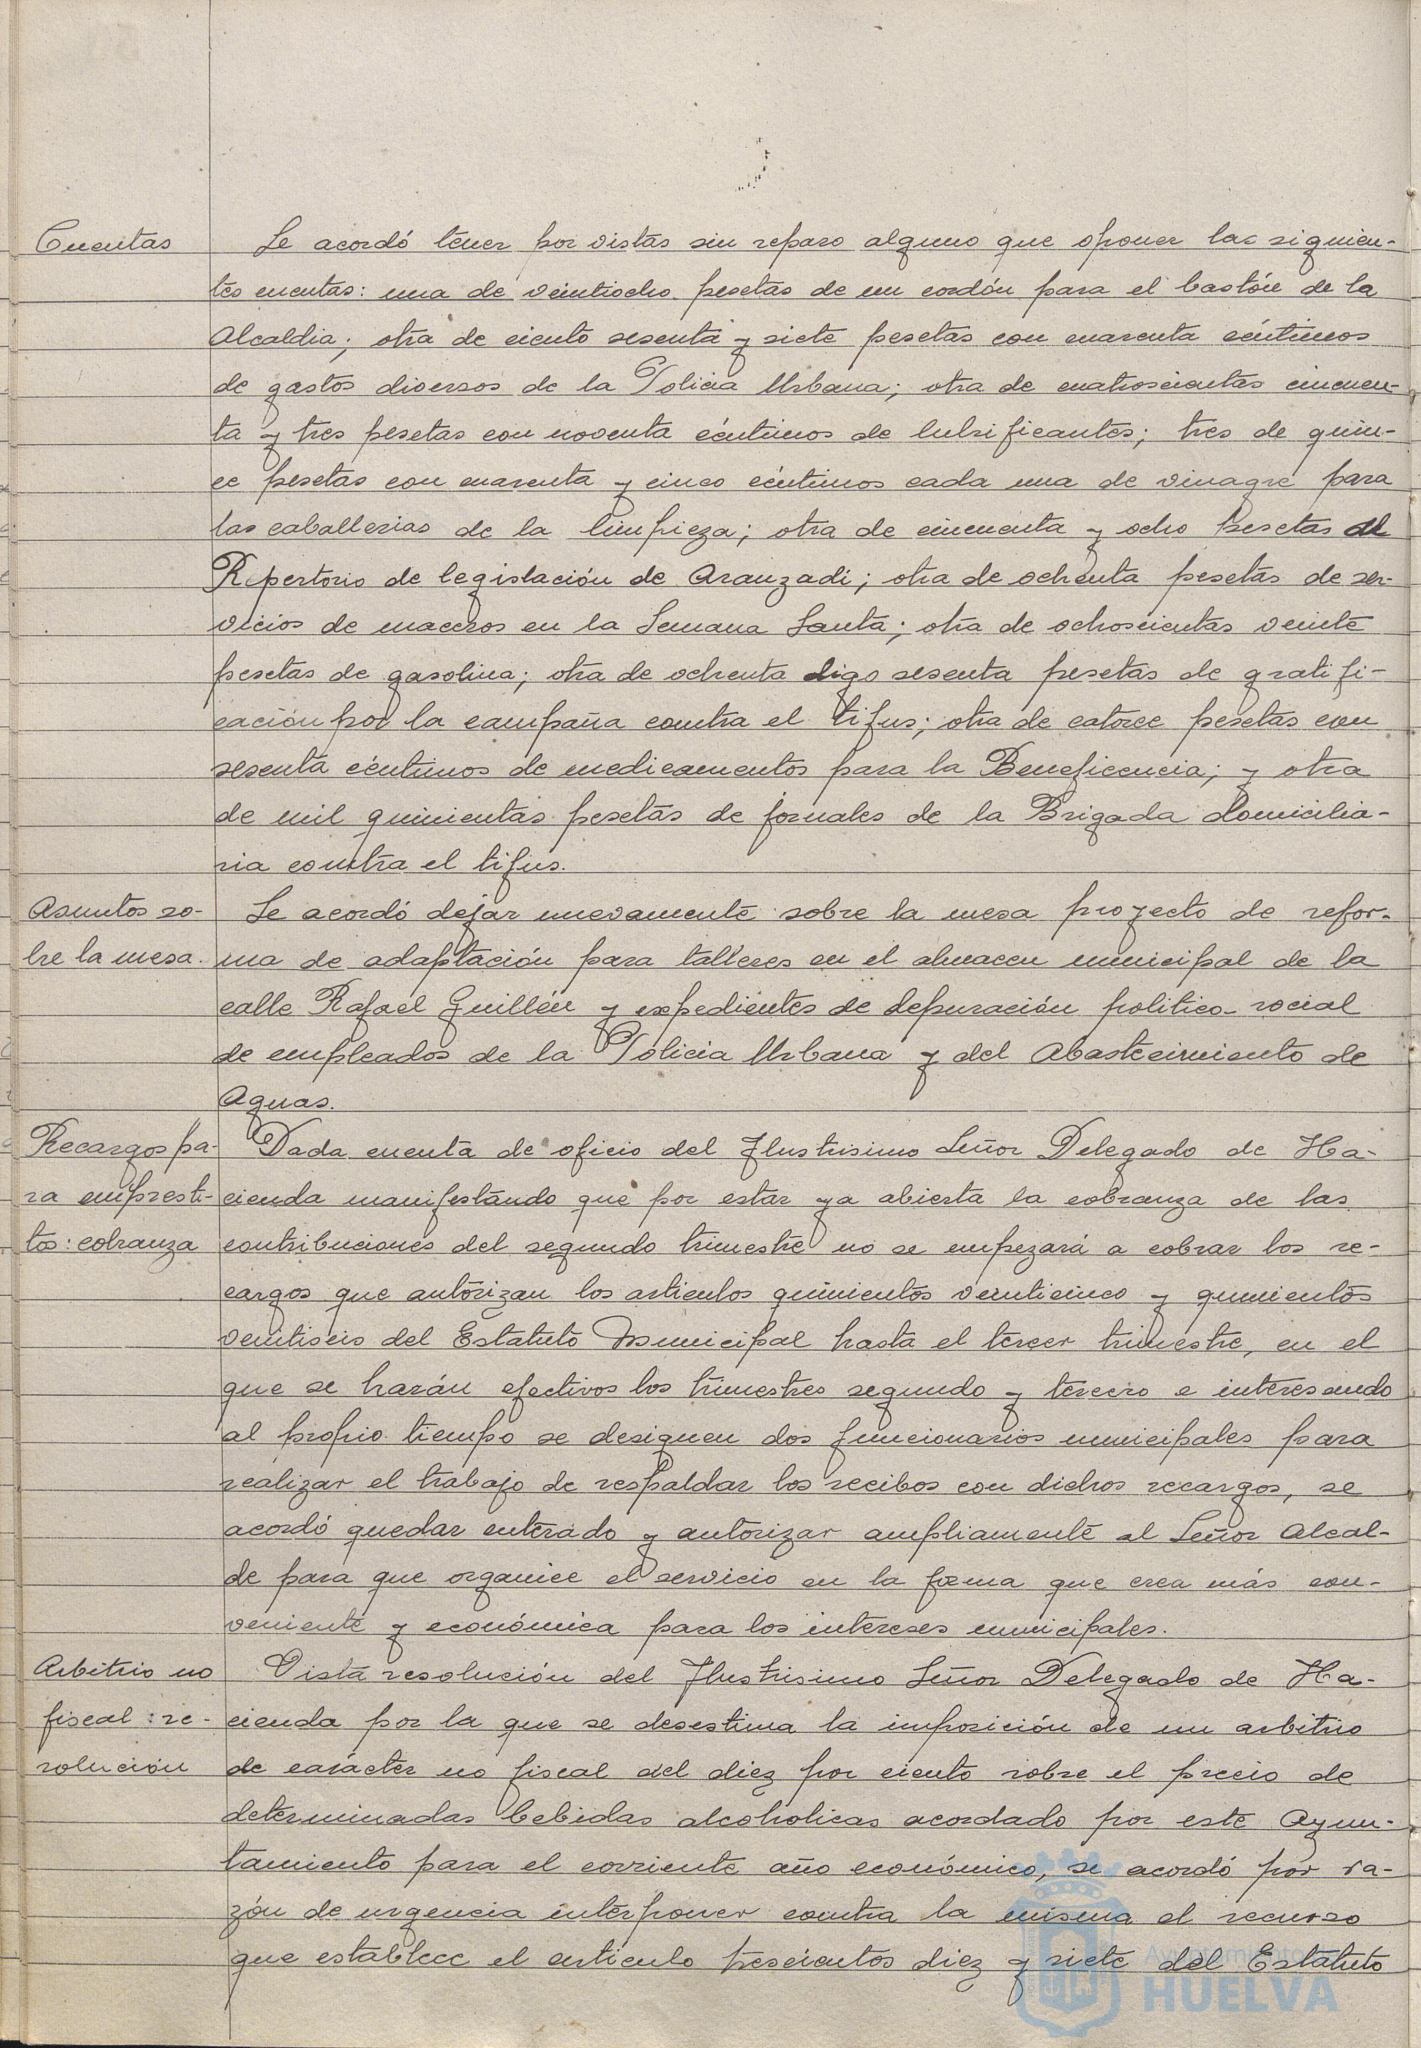 Cuentas
Se acordó tener por vistas sin reparo alguno que oponer las siguien-
tes cuentas: una de veintiocho pesetas de un cordón para el bastón de la
Alcaldia; otra de ciento sesenta y siete pesetas con cuarenta céntimos
de gastos diversos de la Policia Urbana; otra de cuatroscientas cincuen-
ta y tres pesetas con noventa céntimos de lubrificantes; tres de quin-
ce pesetas con cuarenta y cinco céntimos cada una de vinagre para
las caballerias de la limpieza; otra de cincuenta y ocho pesetas del
Repertorio de legislación de Aranzadi; otra de ochenta pesetas de ser-
vicios de maceros en la Semana Santa; otra de ochoscientas veinte
pesetas de gasolina; otra de ochenta digo sesenta pesetas de gratifi-
cación por la campaña contra el tifus; otra de catorce pesetas con
sesenta céntimos de medicamentos para la Beneficencia; y otra
de mil quinientas pesetas de jornales de la Brigada domicilia-
ria contra el tifus.
Asuntos so-
bre la mesa.
Se acordó dejar nuevamente sobre la mesa proyecto de refor-
ma de adaptación para talleres en el almacen municipal de la
calle Rafael Guillén y expedientes de depuración politico-social
de empleados de la Policia Urbana y del Abastecimiento de
Aguas.
Recargos pa-
ra emprésti-
tos: cobranza
Dada cuenta de oficio del Ilustrisimo Señor Delegado de Ha-
cienda manifestando que por estar ya abierta la cobranza de las
contribuciones del segundo trimestre no se empezará a cobrar los re-
cargos que autorizan los articulos quinientos veinticinco y quinientos
veintiseis del Estatuto Municipal hasta el tercer trimestre, en el
que se harán efectivos los trimestres segundo y tercero e interesando
al propio tiempo se designen dos funcionarios municipales para
realizar el trabajo de respaldar los recibos con dichos recargos, se
acordó quedar enterado y autorizar ampliamente al Señor Alcal-
de para que organice el servicio en la forma que crea más con-
veniente y económica para los intereses municipales.
Arbitrio no
fiscal: re-
solución
Vista resolución del Ilustrisimo Señor Delegado de Ha-
cienda por la que se desestima la imposición de un arbitrio
de carácter no fiscal del diez por ciento sobre el precio de
determinadas bebidas alcoholicas acordado por este Ayun-
tamiento para el corriente año económico, se acordó por ra-
zón de urgencia interponer contra la misma el recurso
que establece el articulo trescientos diez y siete del Estatuto
Ayuntamiento de
HUELVA